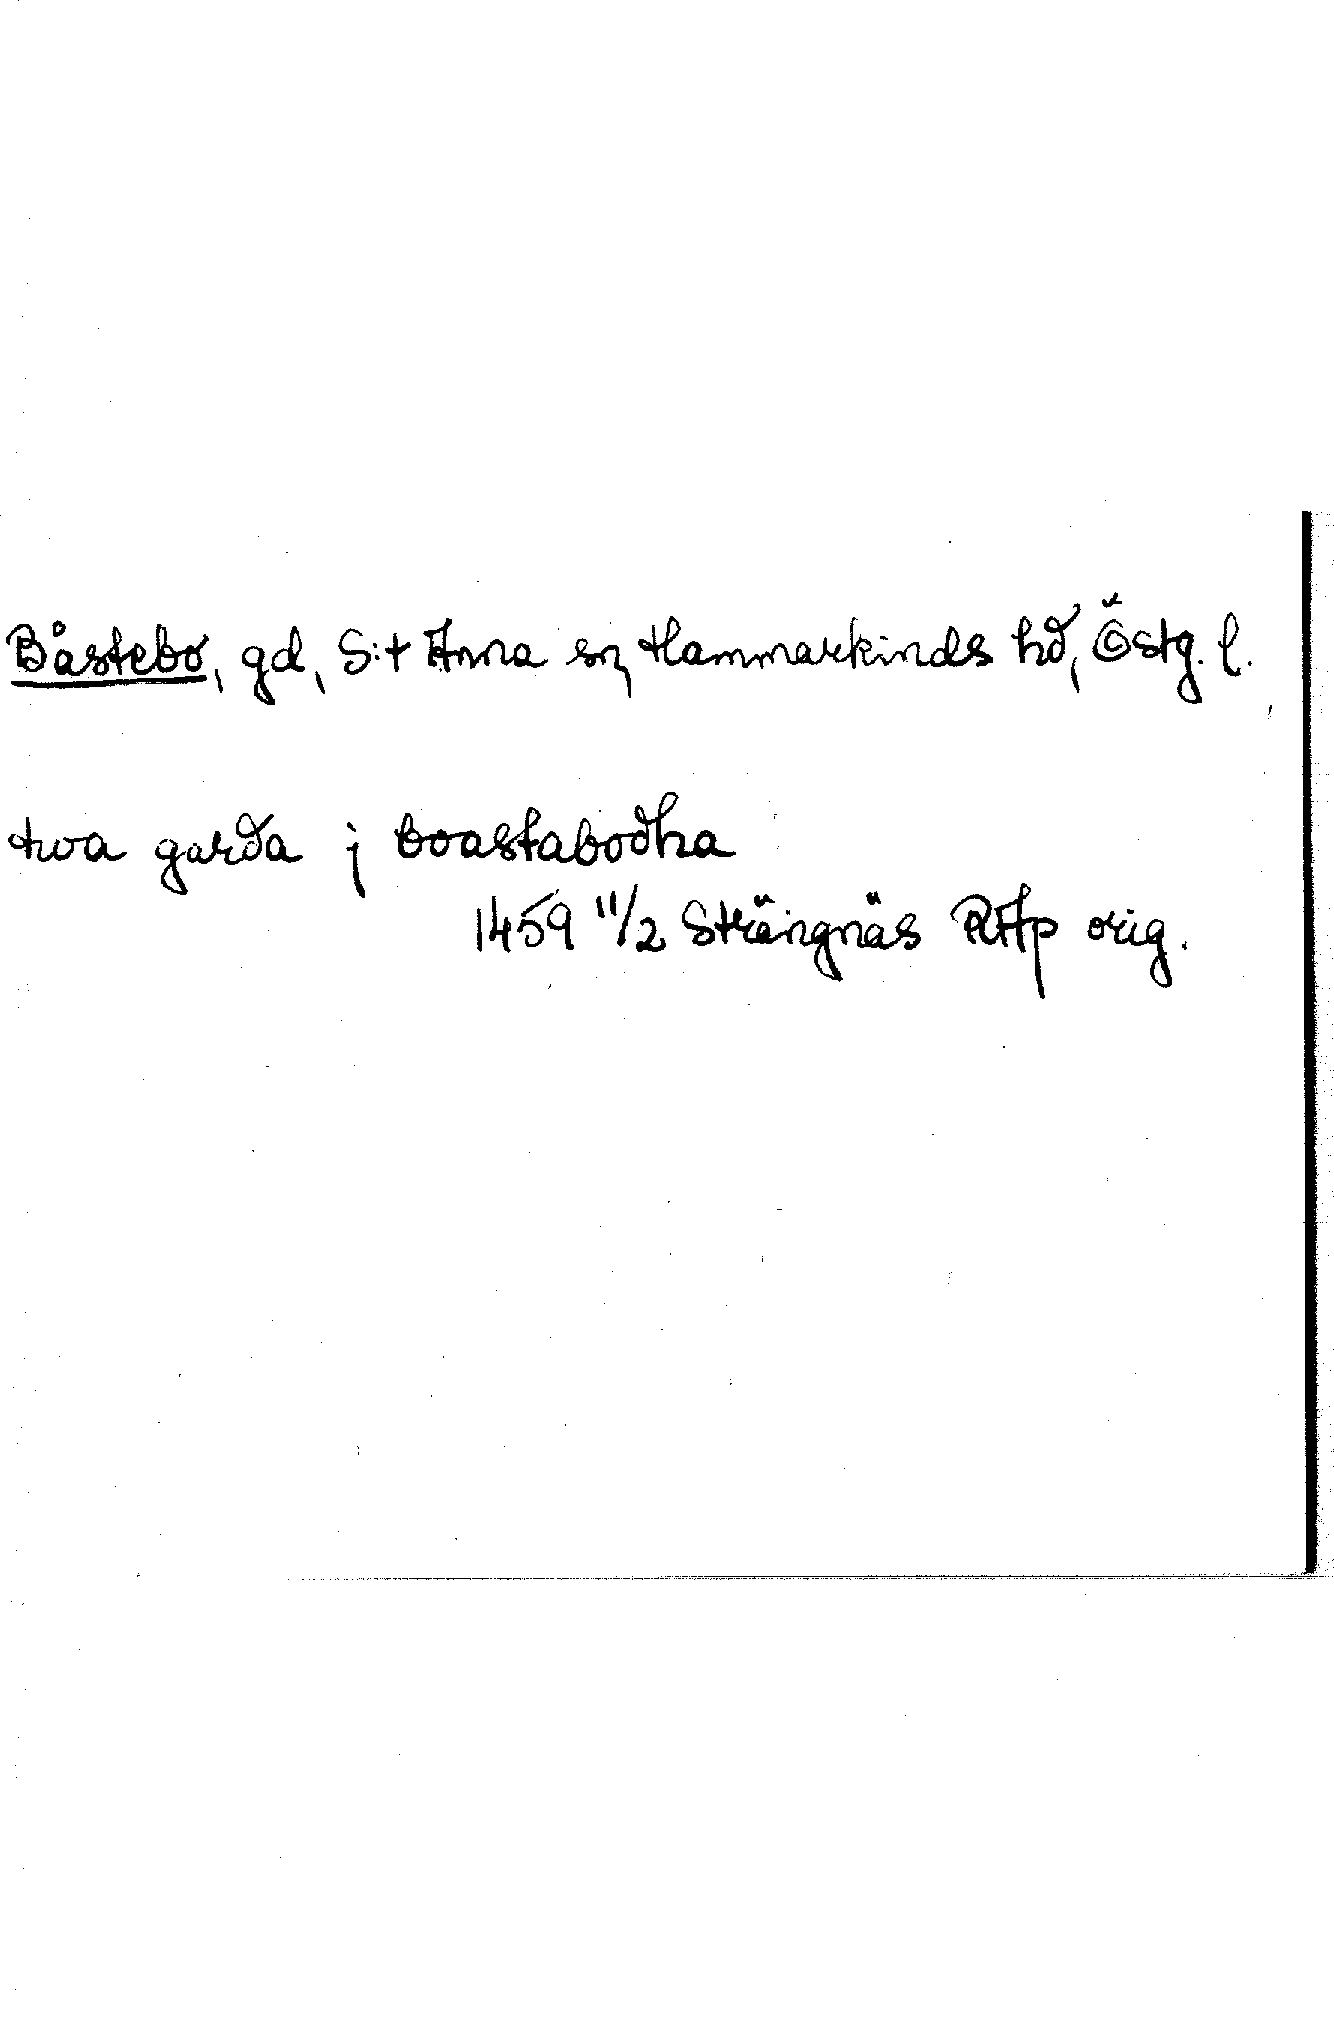 Båstebo, gd, S:t Anna sn, Hammarkinds hd, Östg. l.
twa garda j boastabodha
1459 11/2 Strängnäs RAp orig.